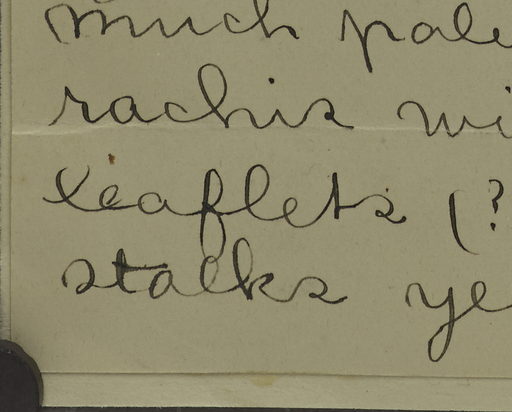 much pale
rachis wi
leaflets (?
stalks ye